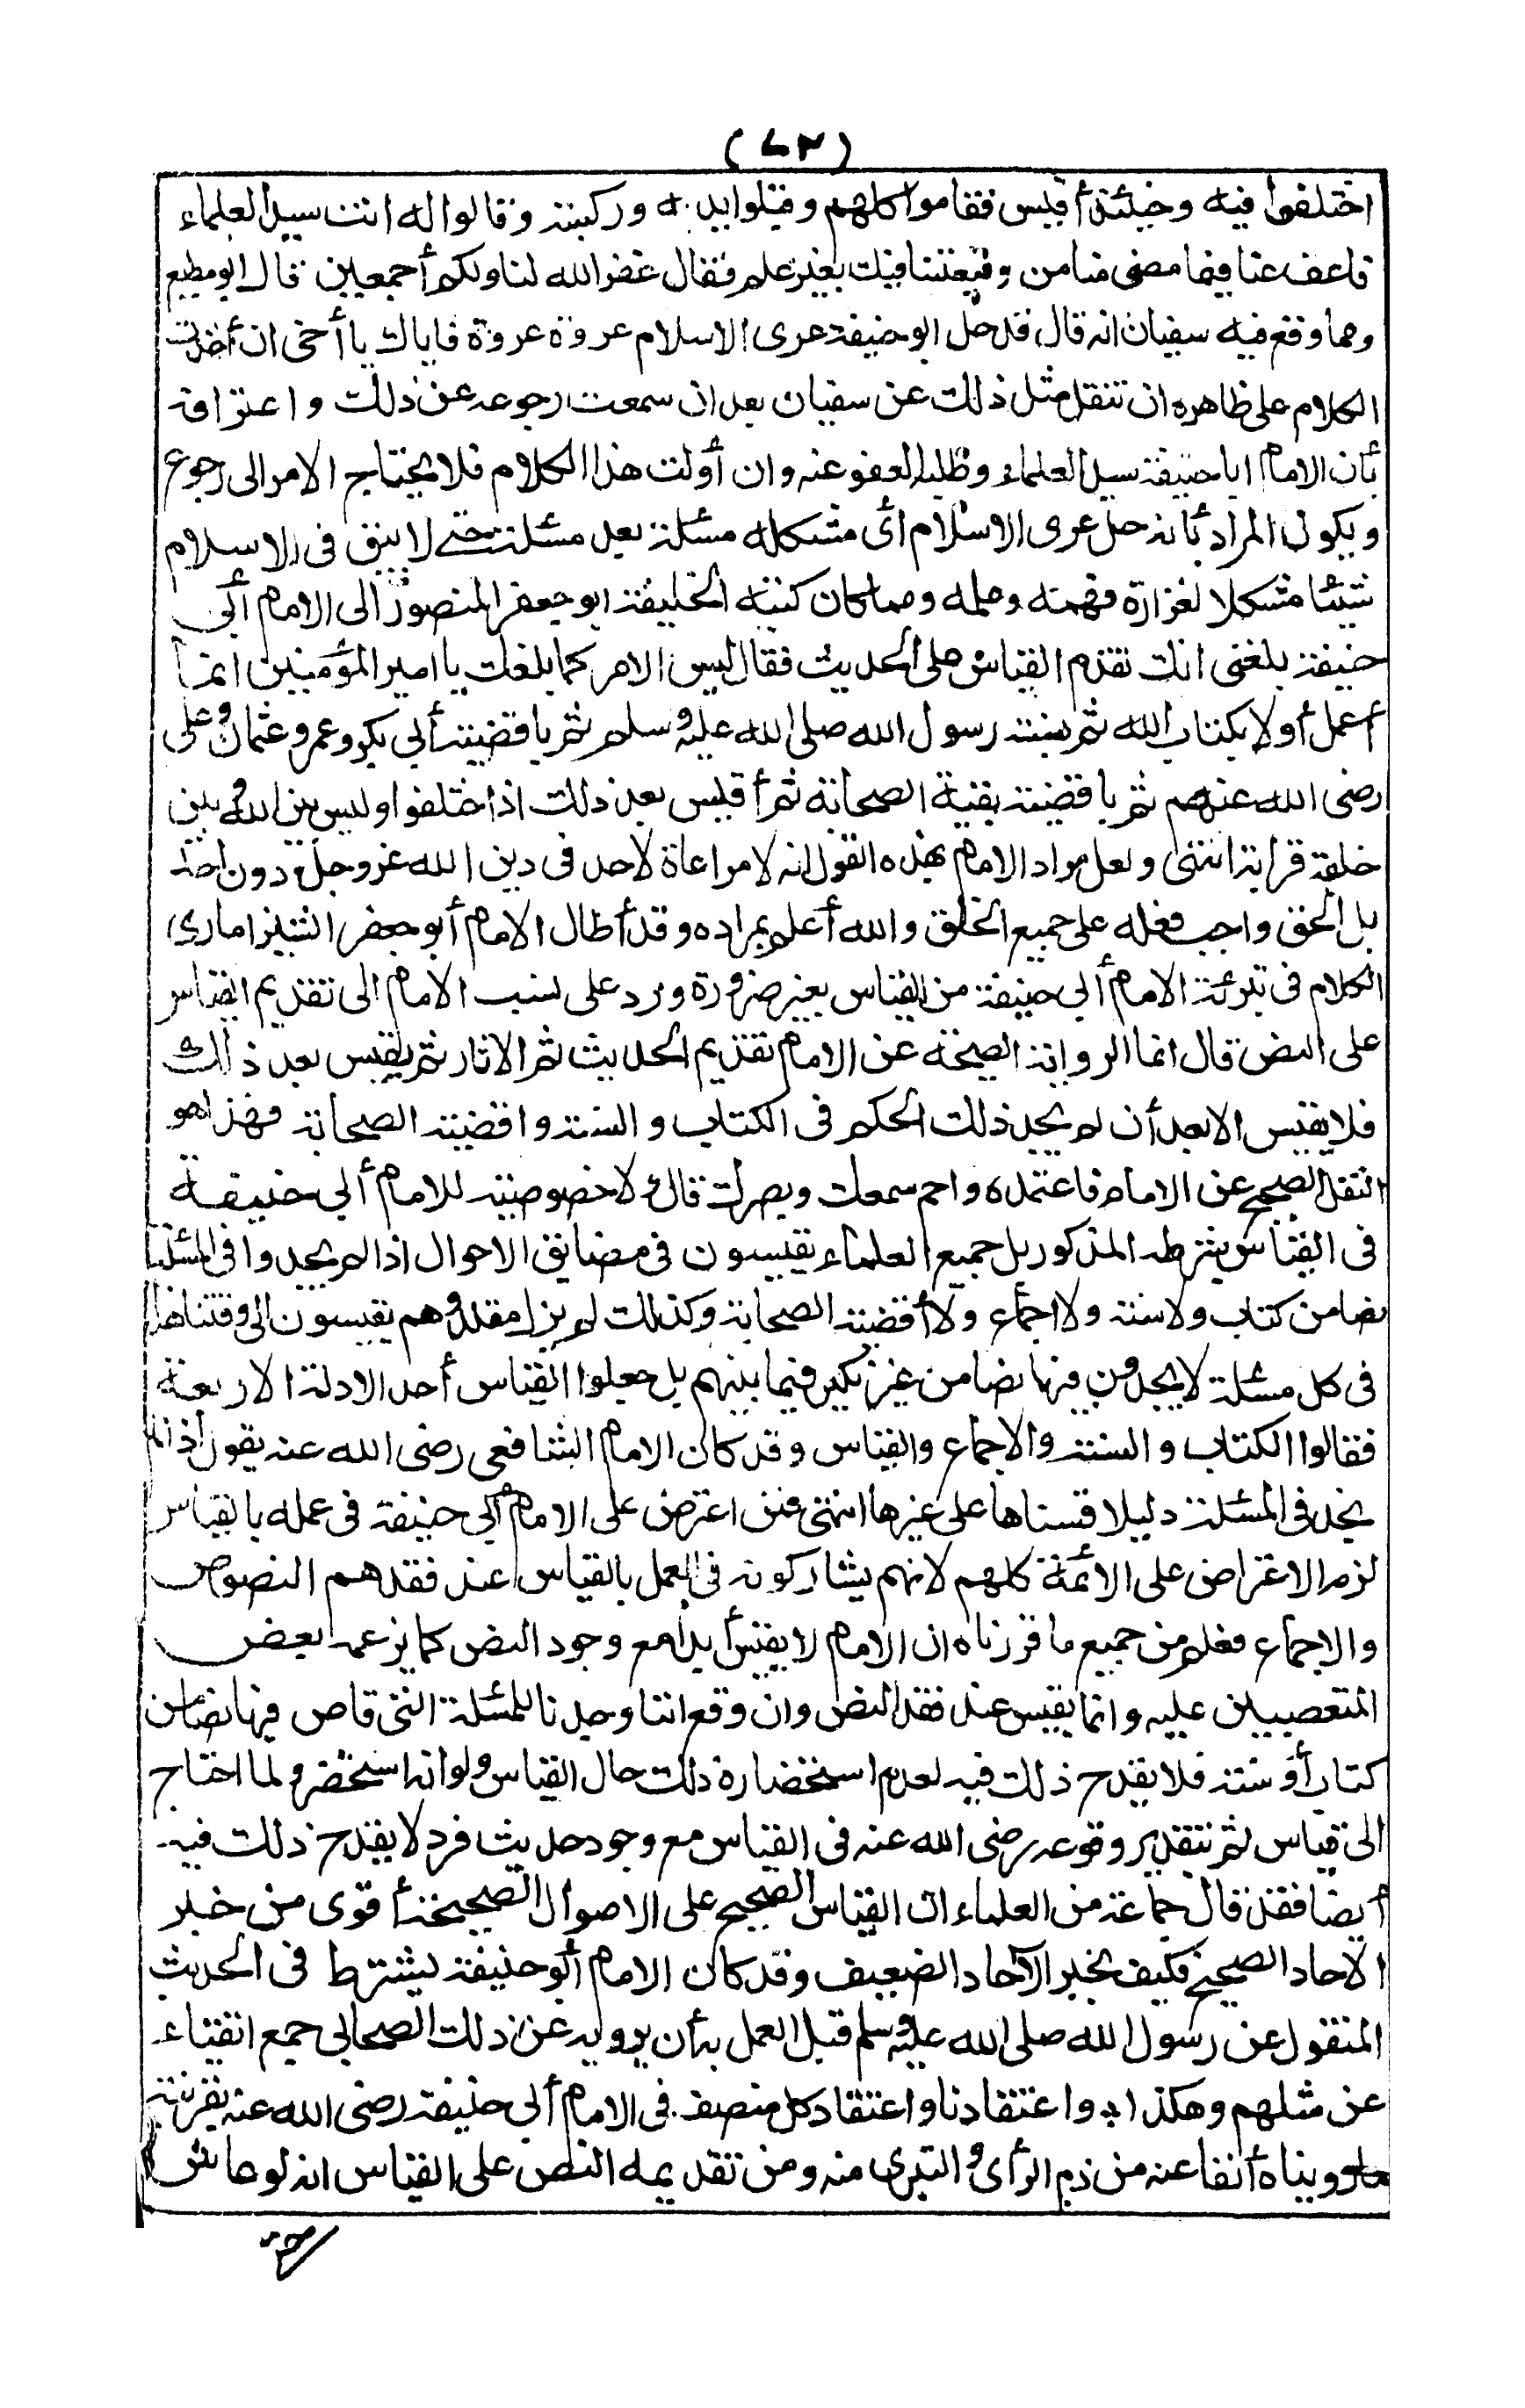 (٧٢)
اختلفوا فيه وحينئذ أقيس فقاموا كلهم وقبلوا يديه وركبته وقالوا له انت سيد العلماء
فاعف عنا فيما مضى منا من وقيعتنا فيك بغير علم فقال غفر الله لنا ولكم أجمعين قال ابو مطيع
ومما وقع فيه سفيان انه قال قد حل ابو حنيفة عرى الاسلام عروة عروة فاياك يا أخى ان أخذت
الكلام على ظاهره ان تنقل مثل ذلك عن سفيان بعد ان سمعت رجوعه عن ذلك واعترافه
بأن الامام ابا حنيفة سيد العلماء وطلبه العفو عنه وان أولت هذا الكلام فلا يحتاج الامر الى رجوع
ويكون المراد بأنه حل عرى الاسلام أى مشكله مسئلة بعد مسئلة حتى لا يبق فى الاسلام
شيئا مشكلا لغزارة فهمه وعلمه ومما كان كتبه الخليفة ابو جعفر المنصور الى الامام أبى
حنيفة بلغنى انك تقدم القياس على الحديث فقال ليس الامر كما بلغك يا امير المؤمنين انما
أعمل أولا بكتاب الله ثم بسنة رسول الله صلى الله عليه وسلم ثم باقضية أبى بكر وعمر وعثمان وعلى
رضى الله عنهم ثم باقضية بقية الصحابة ثم أقيس بعد ذلك اذا اختلفوا وليس بين الله وبين
خلقه قرابة انتهى ولعل مراد الامام بهذه القول انه لا مراعاة لاحد فى دين الله عز وجل دون احد
بل الحق واجب فعله على جميع الخلق والله أعلم بمراده وقد أطال الامام أبو جعفر الشيزامارى
الكلام فى تبرئة الامام أبى حنيفة من القياس بغير ضرورة ورد على نسب الامام الى تقديم القياس
على النص قال انما الرواية الصحيحة عن الامام تقديم الحديث ثم الاثار ثم يقيس بعد ذلك
فلا يقيس الا بعد أن لم يجد ذلك الحكم فى الكتاب والسنة واقضية الصحابة فهذا هو
النقل الصحيح عن الامام فاعتمده واحم سمعك وبصرك قال ولا خصوصية للامام أبى حنيفة
فى القياس بشرطه المذكور بل جميع العلماء يقيسون فى مضايق الاحوال اذا لم يجدوا فى المسئلة
نصا من كتاب ولا سنة ولا اجماع ولا أقضية الصحابة وكذلك لم يزل مقلدوهم يقيسون الى وقتنا هذا
فى كل مسئلة لا يجدون فيها نصا من غير نكير فيما بينهم بل جعلوا القياس أحد الادلة الاربعة
فقالوا الكتاب والسنة والاجماع والقياس وقد كان الامام الشافعى رضى الله عنه يقول اذا لم
نجد فى المسئلة دليلا قسناها على غيرها انتهى فمن اعترض على الامام أبى حنيفة فى عمله بالقياس
لزمه الاعتراض على الأئمة كلهم لانهم يشاركونه فى العمل بالقياس عند فقدهم النصوص
والاجماع فعلم من جميع ما قررناه ان الامام لا يقيس أبدا مع وجود النص كما يزعمه بعض
المتعصبين عليه وانما يقيس عند فقد النص وان وقع اننا وجدنا للمسئلة التى قاص فيها نصا من
كتاب أو سنة فلا يقدح ذلك فيه لعدم استحضاره ذلك حال القياس ولو انه استحضره لما احتاج
الى قياس ثم بتقدير وقوعه رضى الله عنه فى القياس مع وجود حديث فرد لا يقدح ذلك فيه
أيضا فقد قال جماعة من العلماء ان القياس الصحيح على الاصول الصحيحة أقوى من خبر
الاحاد الصحيح فكيف بخبر الآحاد الضعيف وقد كان الامام أبو حنيفة يشترط فى الحديث
المنقول عن رسول الله صلى الله عليه وسلم قبل العمل به أن يرويه عن ذلك الصحابى جمع اتقياء
عن مثلهم وهكذا واعتقادنا واعتقاد كل منصف فى الامام أبى حنيفة رضى الله عنه بقرينة
ما رويناه أنفا عنه من ذم الرأى والتبرى منه ومن تقديمه النص على القياس انه لو عاش